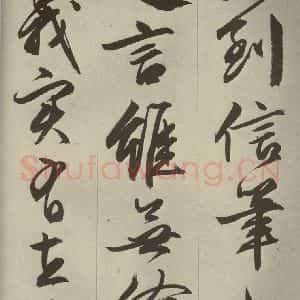 到信筆
言雖無
我实有左
Shufawang.CN